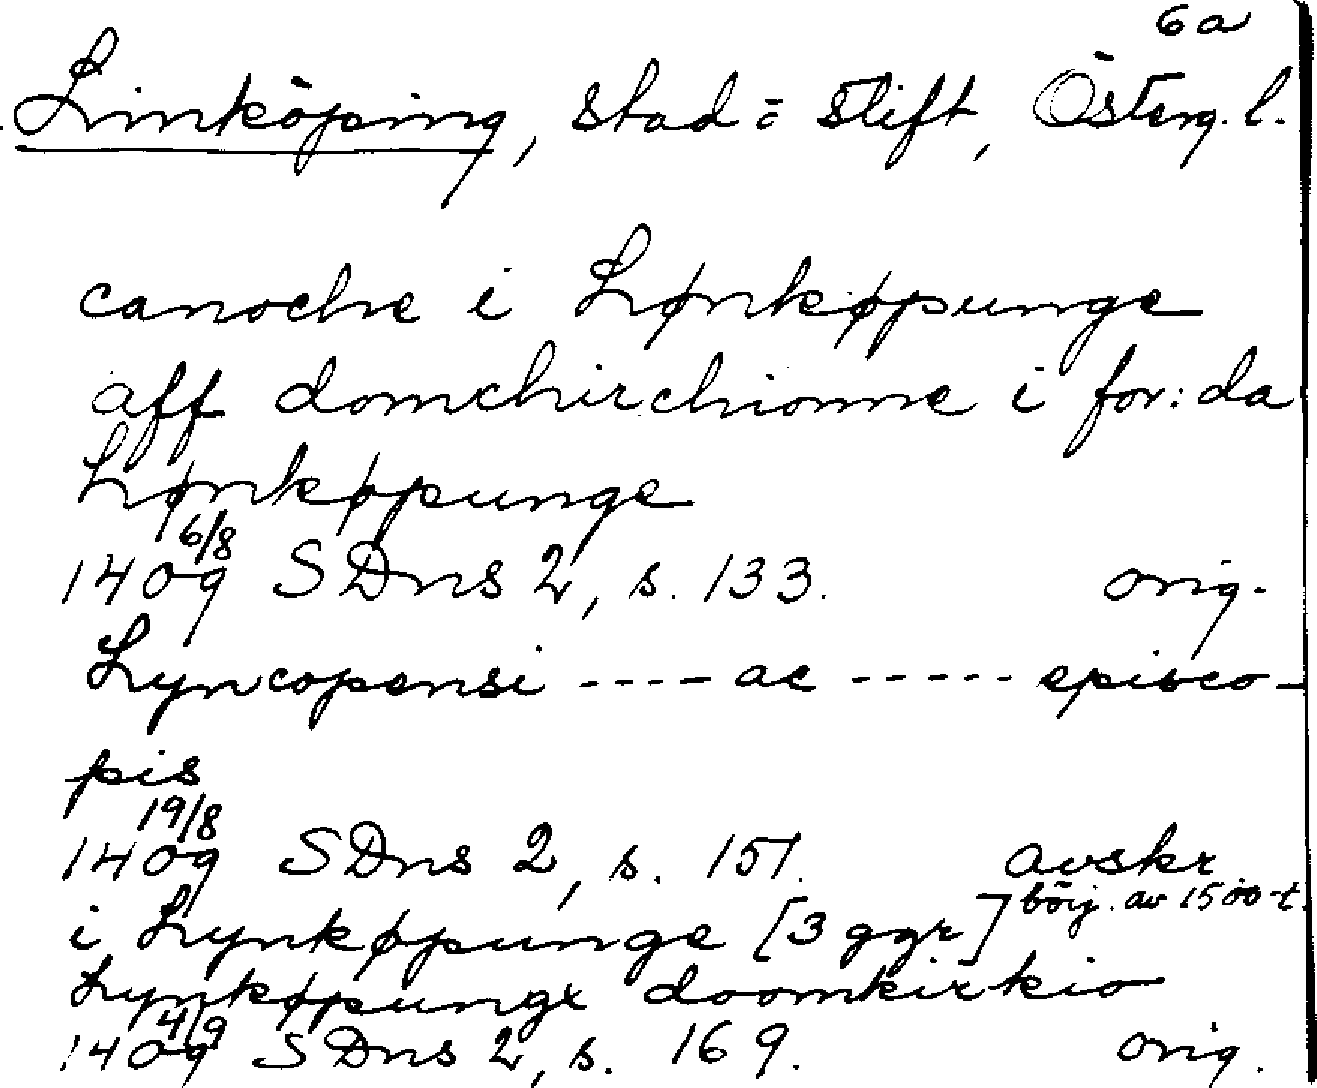 6a
Linköping, stad = stift, Österg. l.
canoche i Lønkøpunge
aff domchirchionne i for:da
Lønkøpunge
6/8
1409 SDns 2, s. 133. orig.
Lyncopensi ---- ac ----- episco-
pis
19/8
1409 SDns 2, s. 151. avskr
börj. av 1500-t.
i Lynkøpunge [3 ggr]
Lynkøpungx doomkirkio
4/9
1409 SDns 2, s. 169. orig.